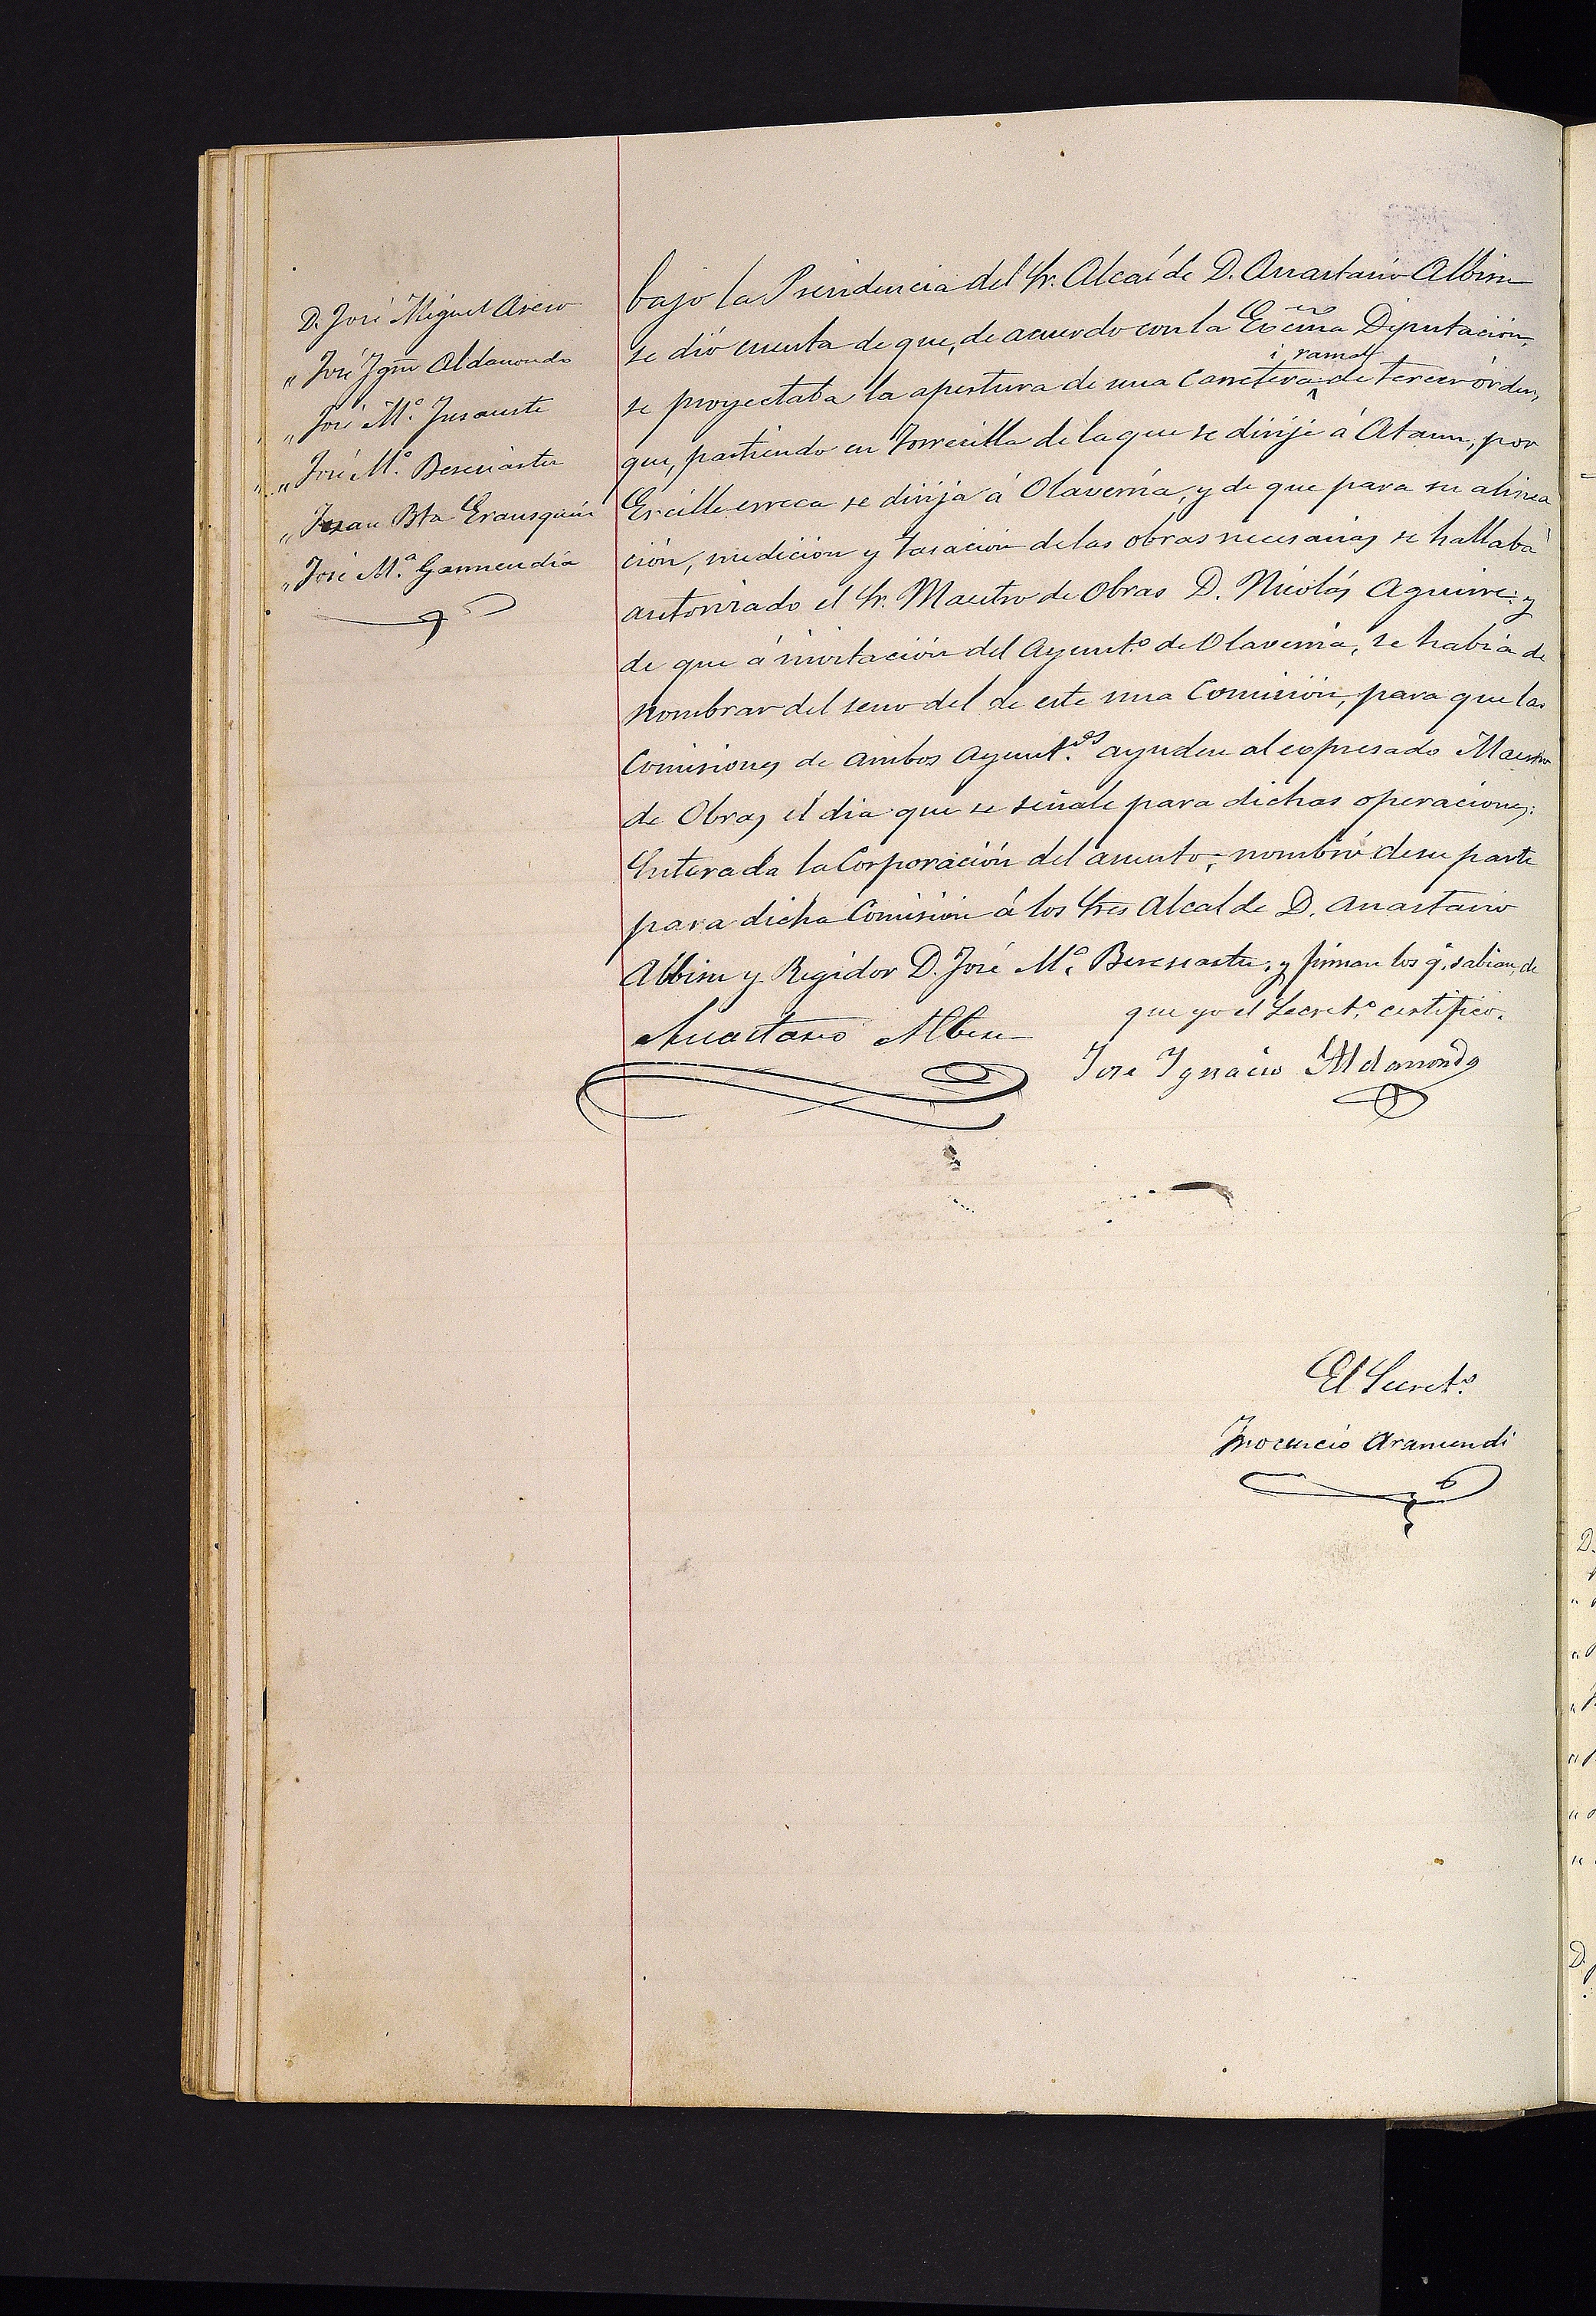 D. José Miguel Asero
„ José Ygn.º Aldanondo
„ José M.ª Insausti
„ José M.ª Beresiartu
„ Juan Bta Erausquin
„ José M.ª Garmendia
bajo la Presidencia del Sr. Alcalde D. Anastasio Albisu
se dió cuenta de que, de acuerdo con la Excma Diputación,
se proyectaba la apertura de una Carretera ó ramal de tercer órden,
que, partiendo en Torrecilla de la que se dirije á Ataun, por
Ercille erreca se dirija á Olaverria, y de que para su alinea
ción, medición y tasación de las obras necesarias se hallaba
autorizado el Sr. Maestro de Obras D. Nicolás Aguirre: y
de que á invitación del Ayunt.º de Olaverria, se había de
nombrar del seno del de este una Comisión, para que las
Comisiones de ambos Ayunt.os ayuden al expresado Maestro
de Obras el dia que se señale para dichas operaciones:
Enterada la Corporación del asunto, nombró de su parte
para dicha Comisión á los Sres Alcalde D. Anastasio
Albisu y Regidor D. José M.ª Beresiartu, y firman los q. sabian, de
que yo el Secret.º certifico.
Anastasio Albisu
Jose Ygnacio Aldanondo
El Secret.º
Ynocencio Aramendi